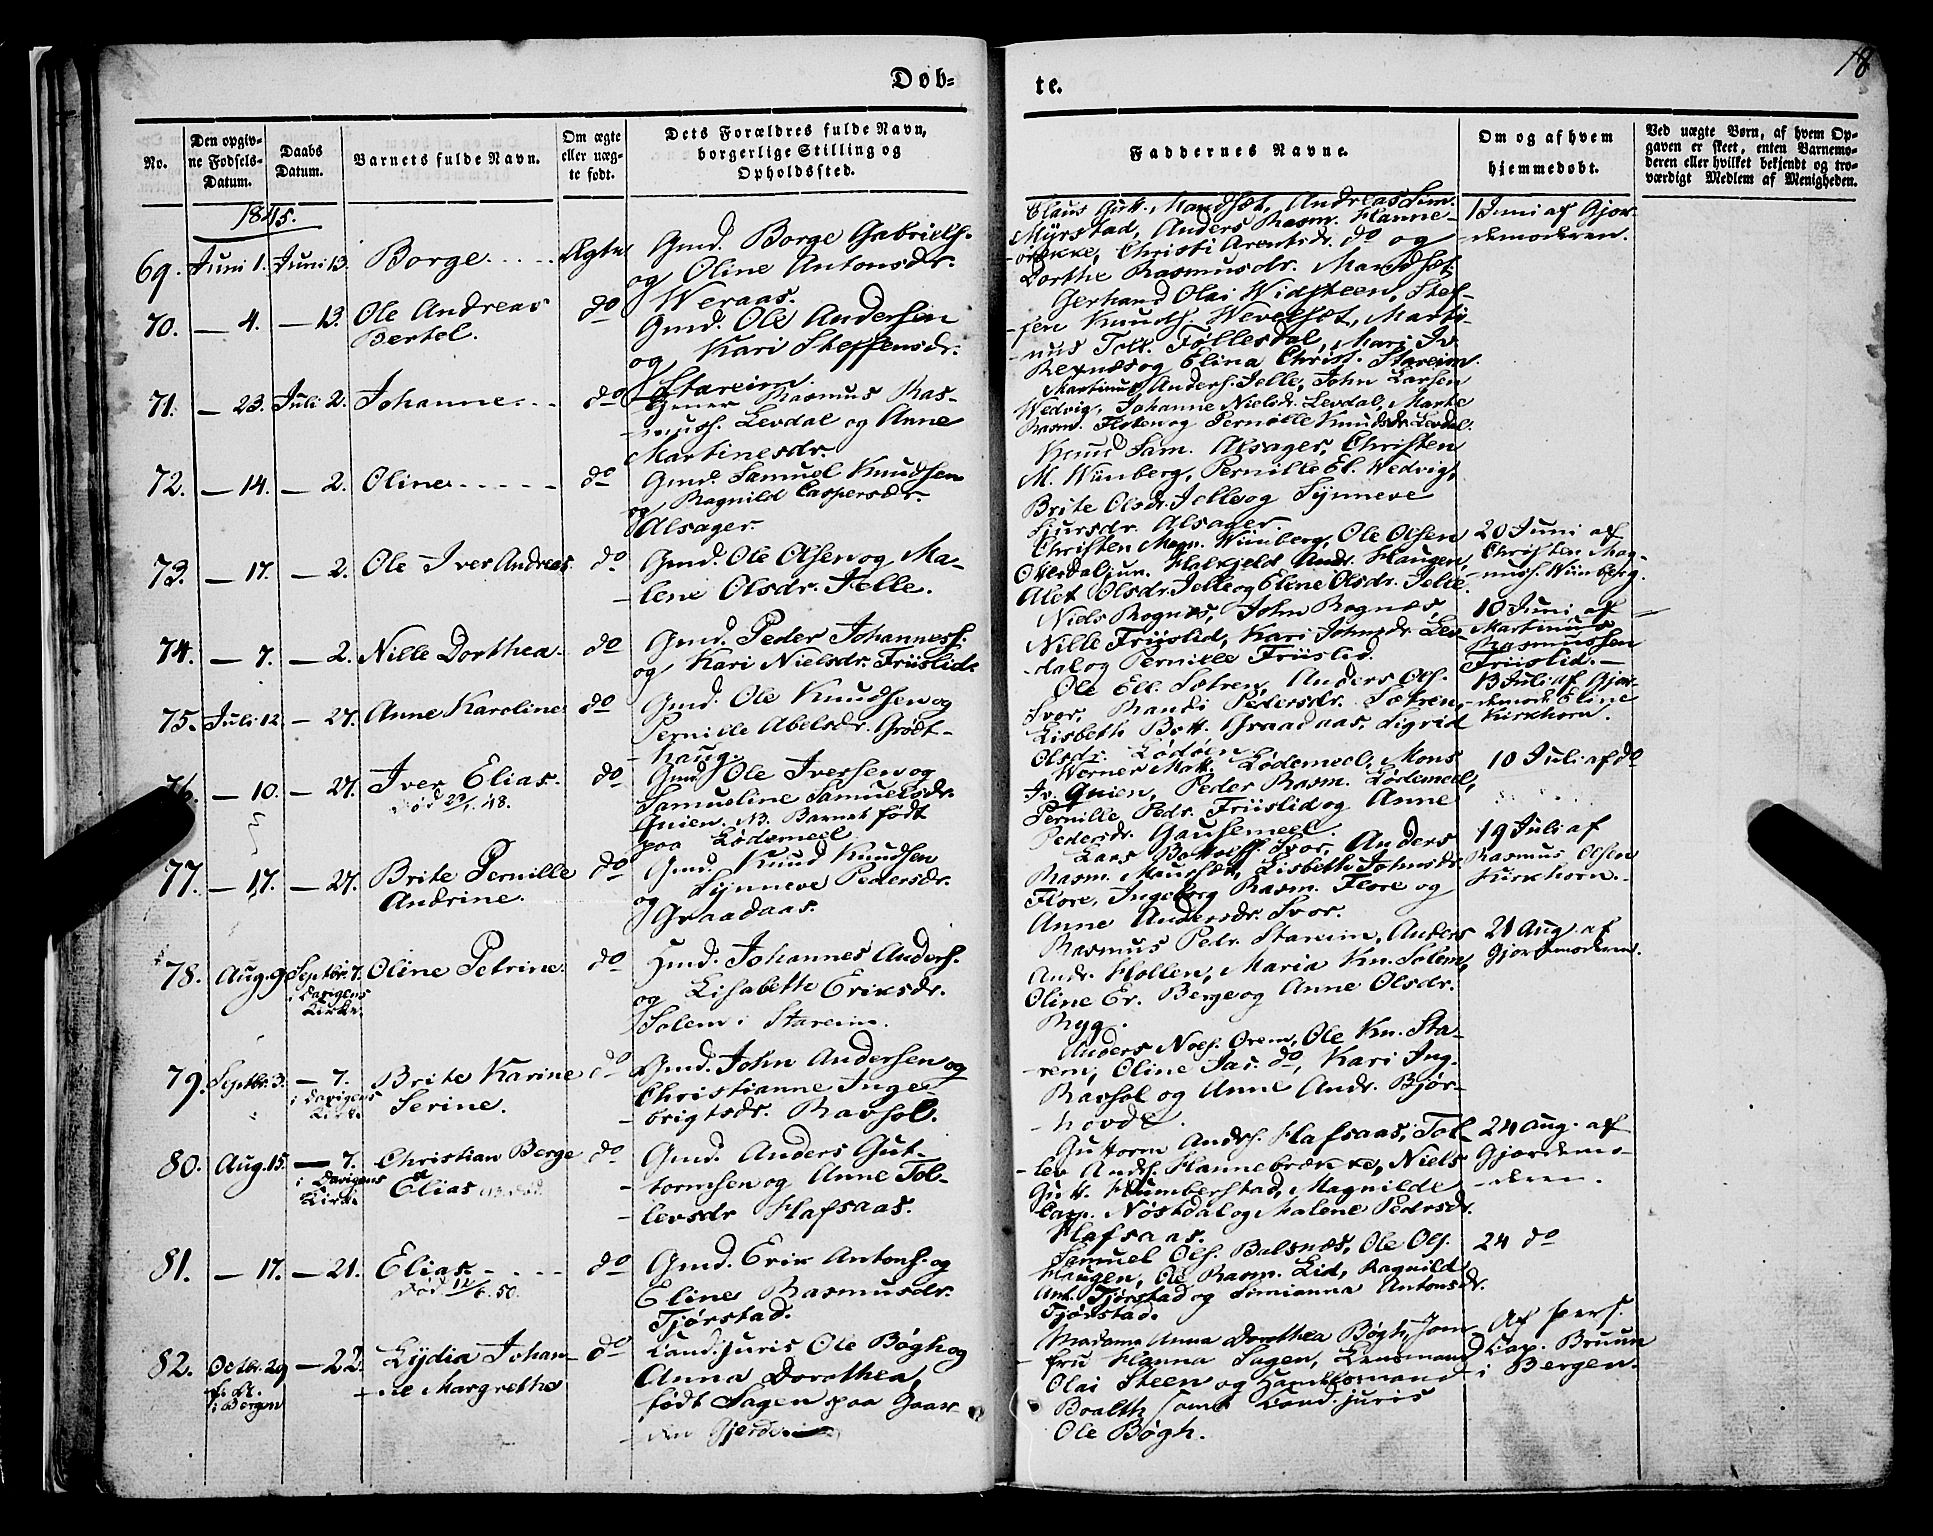 18
Døb-
te.
No.
Den opgiv-
ne Fødsels-
Datum.
Daabs
Datum.
Barnets fulde Navn.
Om ægte
eller uæg-
te født.
Dets Forældres fulde Navn,
borgerlige Stilling og
Opholdssted.
Faddernes Navne.
Om og af hvem
hjemmedøbt.
Ved uægte Børn, af hvem Op-
gaven er skeet, enten Barnemo-
deren eller hvilket bekjendt og tro-
værdigt Medlem af Menigheden.
1845.
69. Juni 1. Juni 13. Borge Ægte
Gmd. Borge Gabriels.
og Oline Antonsdr.
Weraas.
Claus Gutt. Mandhsæt, Andreas Sim.
Myrstad, Anders Rasm. Hanne-
brække, Christi Arentsdr. do og
Dorthe Rasmusdr. Mandsæt
1 Juni af Gjor-
demoderen.
70. — 4. — 13. Ole Andreas
Bertel. do
Gmd. Ole Andersen
og Kari Steffensdr.
Stareim.
Gerhard Olai Widsteen, Stef-
fen Knuds. Wevelsæt, Marti-
nus Toll. Føllesdal, Mari Iv.
Rexnæs og Elina Christ. Stareim.
71. — 23. Juli 2. Johanne do
Rasmus Ras-
mus. Levdal og Anne
Martinesdr.
Martinus Anders. Jelle, John Larsen
Wedvig, Johanne Nielsdr. Levdal, Marte
Rasm. Floten og Pernille Knudsdr. Levdal.
72. — 14. — 2. Oline do
Gmd. Samuel Knudsen
og Ragnild Caspersdr.
Alsager.
Knud Sam. Alsager, Christen
M. Wünberg, Pernille El. Wedvig,
Brite Olsdr. Jelle og Synneve
Sjursdr. Alsager.
73. — 17. — 2. Ole Iver Andreas do
Gmd. Ole Olsen og Ma-
lene Olsdr. Jelle.
Christen Magn. Wünberg, Ole Olsen
Otterdal jun. Halkjeld Andr. Haugen,
Alet Olsdr. Jelle og Eline Olsdr. Jelle
20 Juni af
Christen Mag-
nuss. Wünberg.
74. — 7. — 2. Nille Dorthea do
Gmd. Peder Johanness.
og Kari Nielsdr. Friislid.
Niels Rognæs, John Rognæs,
Nille Friislid, Kari Johnsdr. Lev-
dal og Pernille Friislid.
10 Juni af
Martinus
Rasmussen
Friislid.
75. Juli 12. — 27. Anne Karoline do
Gmd. Ole Knudsen og
Pernille Abelsdr. Grodt-
haug.
Ole Ell. Sætren, Anders Ols.
Svor, Randi Pedersdr. Sætren,
Lisbeth Bott. Graadaas, Sigrid
Olsdr. Lødøen
13 Juli af Gjor-
demodr. Eline
Kirkhorn.
76. — 10. — 27. Iver Elias. do
død 29/1. 48.
Gmd. Ole Iversen og
Samueline Samuelsdr.
Quien. NB. Barnet født
paa Lødemeel
Werner Matt. Lødemeel, Mons
Iv. Quien, Peder Rasm. Lødemeel,
Pernille Pedr. Friislid og Anne
Pedersdr. Gausemeel.
10 Juli af do
77. — 17. — 27. Brite Pernille
Andrine. do
Gmd. Knud Knudsen
og Synneve Pedersdr.
Graadaas.
Lars Bottolfs. Svor, Anders
Rasm. Maursæt, Lisbeth Johnsdr.
Flore, Ingeborg Rasm. Flore og
Anne Andersdr. Svor.
19 Juli af
Rasmus Olsen
Kirkhorn.
78. Aug. 9. Septbr. 7.
i Davigens
Kirke.
Oline Petrine. do
Hmd. Johannes Anders.
og Lisabeth Eriksdr.
Solem i Stareim.
Rasmus Pedr. Stareim, Anders
Andr. Hollen, Maria Kn. Solem,
Oline Er. Berge og Anne Olsdr.
Ryg.
21 Aug. af
Gjordemoderen.
79. Septbr. 3. — 7.
i Davigens
Kirke
Brite Karine
Serine. do
Gmd. John Andersen og
Christianne Inge-
brigtsdr. Ravhol.
Anders Nols. Orem, Ole Kn. Sta-
rem, Oline Jas. do, Kari Ing.
Ravhol og Anne Andr. Bjør-
hovde.
80. Aug. 15. — 7.
i Davigens
Kirke
Christian Berge
Elias do
Gmd. Anders Gut-
tormsen og Anne Tol-
levsdr Hafsaas.
Guttorm Andrs. Hafsaas, Tol-
lev Andrs. Hannebrække, Niels
Gutt. Humberstad, Magnilde
Casp. Nøstdal og Malene Pedersdr.
Hafsaas.
24 Aug. af
Gjordemo-
deren.
81. — 17. — 21. Elias. do
død 11/6. 50.
Gmd. Erik Antons. og
Eline Rasmusdr.
Tjørstad.
Samuel Ols. Balsnæs, Ole Ols.
Haugen, Ole Rasm. Lid, Ragnild
Ant. Tjørstad og Simianna Antonsdr.
Tjørstad.
24 do
82. Octbr. 29
f. A.
i Bergen
— 22. Lydia Johan-
ne Margrethe do
Cand. juris Ole Bøgh og
Anna Dorothea,
født Sagen paa Gaar-
den Gjerde.
Madame Anna Dorothea Bøgh, Jom-
fru Hanna Sagen, Lensmand
Olai Steen og Handelsmand
Boalth samt Cand. juris
Ole Bøgh.
Af pers.
Cap. Bruun
i Bergen.